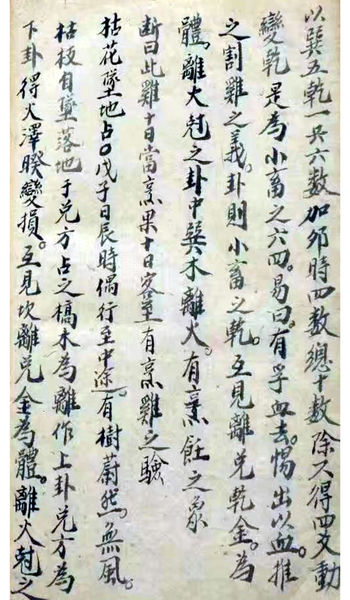 以巽五乾一共六數加卯時四數總十數除六得四爻動
變乾是為小畜之六四。易曰。有孚血去。惕出以血。推
之割雞之義。卦則小畜之乾。互見離兌乾金。為
體。離火尅之卦中巽木離火。有烹飪之象
断曰此雞十日當烹果十日客至有烹雞之驗
枯花墜地占〇戊子日辰時偶行至中途。有樹蔚然。無風。
枯枝自墜落地于兌方占之槁木為離作上卦兌方為
下卦得火澤睽變損。互見坎離兌金為體。離火尅之